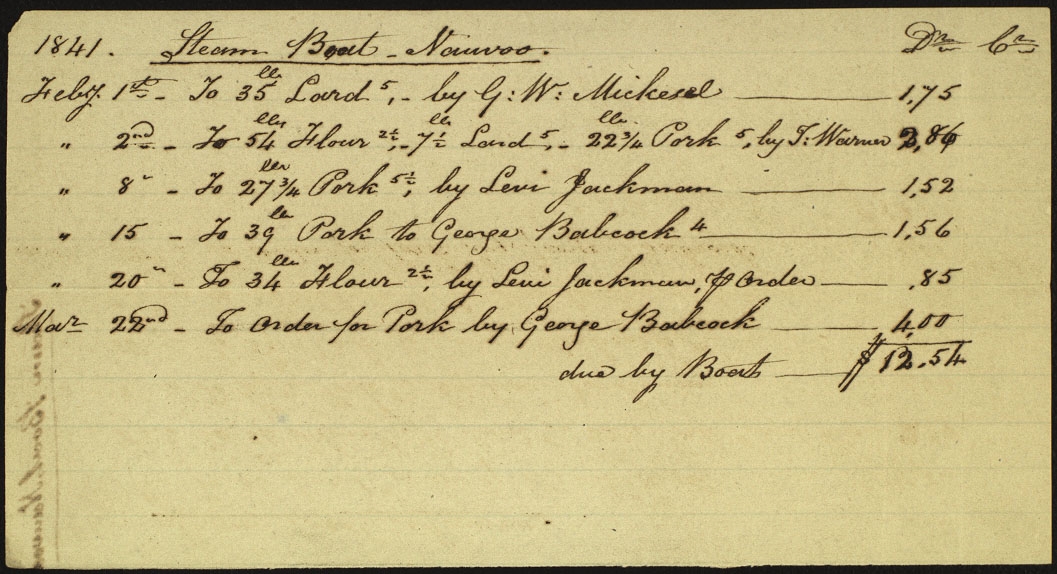 1841. Steam Boat - Nauvoo. Dr Cr
Feby. 1st - To 35 lbs Lard 5, - by G: W: Mickesel 1,75
" 2nd - To 54 lbs Flour 2½, - 7½ lbs Lard 5, - 22¾ lbs Pork 5, by T: Warner 2,86
" 8" - To 27¾ lbs Pork 5½, by Levi Jackman 1,52
" 15 - To 39 lbs Pork to George Babcock 4 1,56
" 20" - To 34 lbs Flour 2½, by Levi Jackman, ⅌ Order ,85
Mar 22nd - To Order for Pork by George Babcock 4,00
due by Boat $12.54